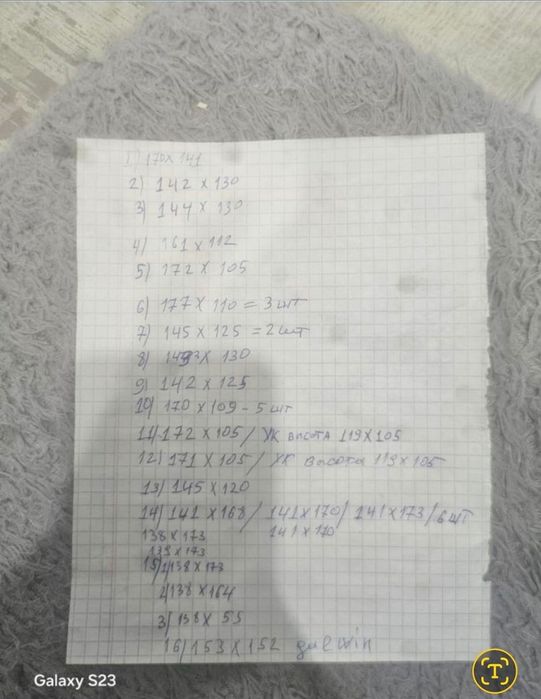 1) 170 x 141
2) 142 x 130
3) 144 x 130
4) 161 x 112
5) 172 x 105
6) 177 x 110 = 3 шт
7) 145 x 125 = 2 шт
8) x 130
9) 142 x 125
10) 170 x 109 - 5 шт
11) 172 x 105 / УК высота 119 x 105
12) 171 x 105 / УК высота 119 x 105
13) 145 x 120
14) 141 x 168 / 141 x 170 / 141 x 173 / 6 шт
138 x 173 141 x 170
138 x 173
15) 1) 138 x 173
2) 138 x 164
3) 138 x 55
16) 153 x 152
Galaxy S23
T